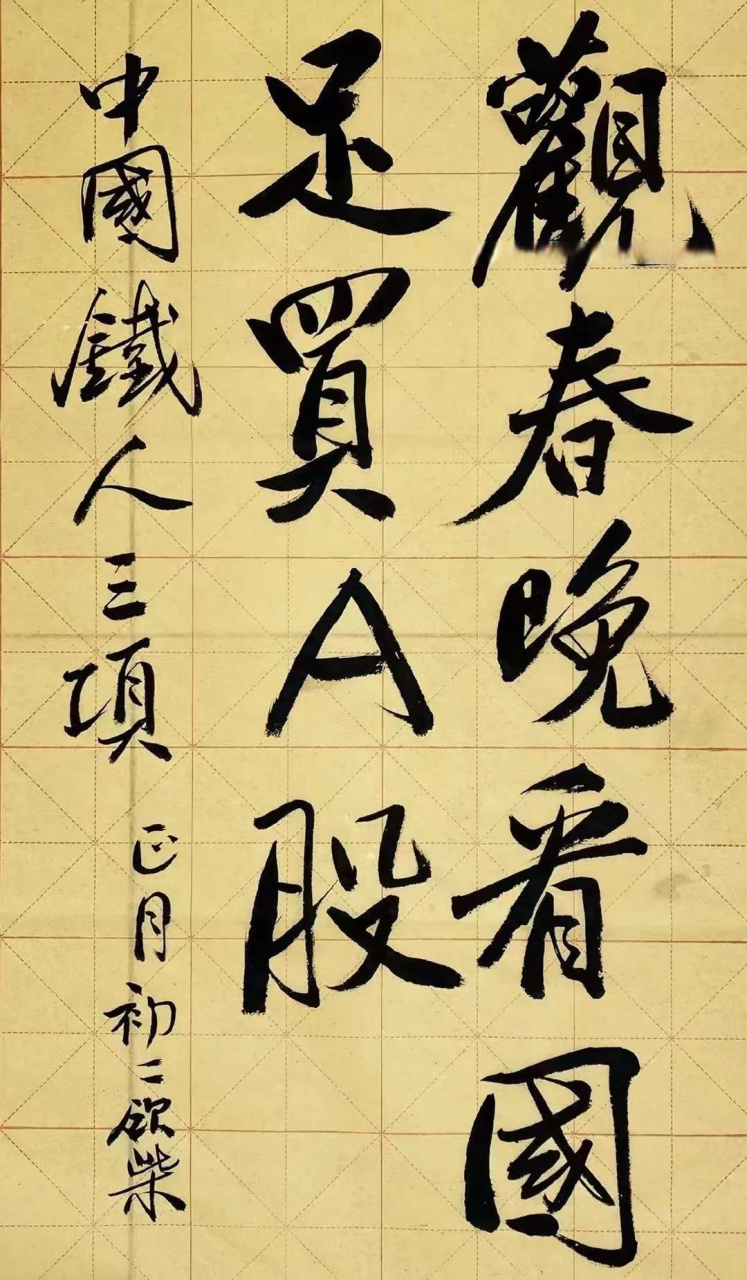 觀春晚看國
足買A股
中國鐵人三項
正月初二欲柴